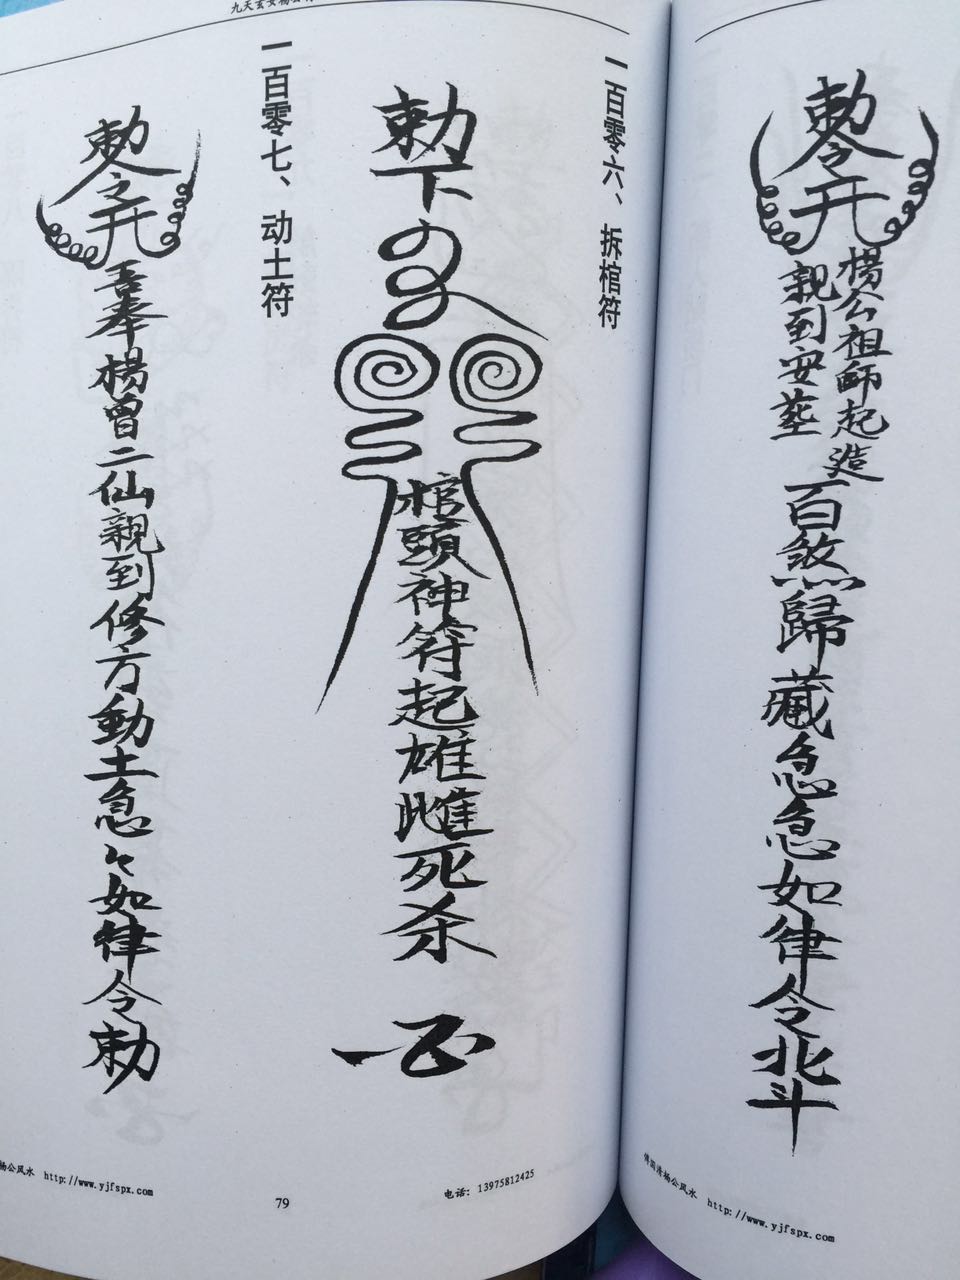 九天玄女杨公
一百零六、拆棺符
敕下
棺頭神符起雄雌死杀
一百零七、动土符
敕令
吾奉楊曾二仙親到修方動土急々如律令敕
杨公风水 http://www.yjfspx.com
79
电话：13975812425
敕令
楊公祖師起造
親到安葬
百煞歸藏急急如律令北斗
傅国清杨公风水 http://www.yjfspx.com